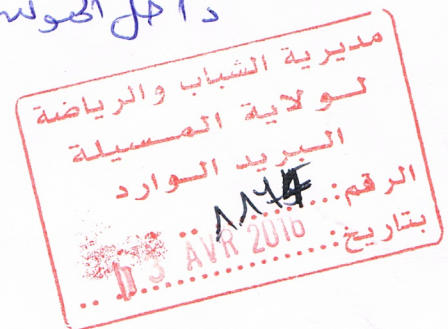 داخل
مديرية الشباب والرياضة
لولاية المسيلة
البريد الوارد
الرقم: 1174
بتاريخ: 03 AVR 2016